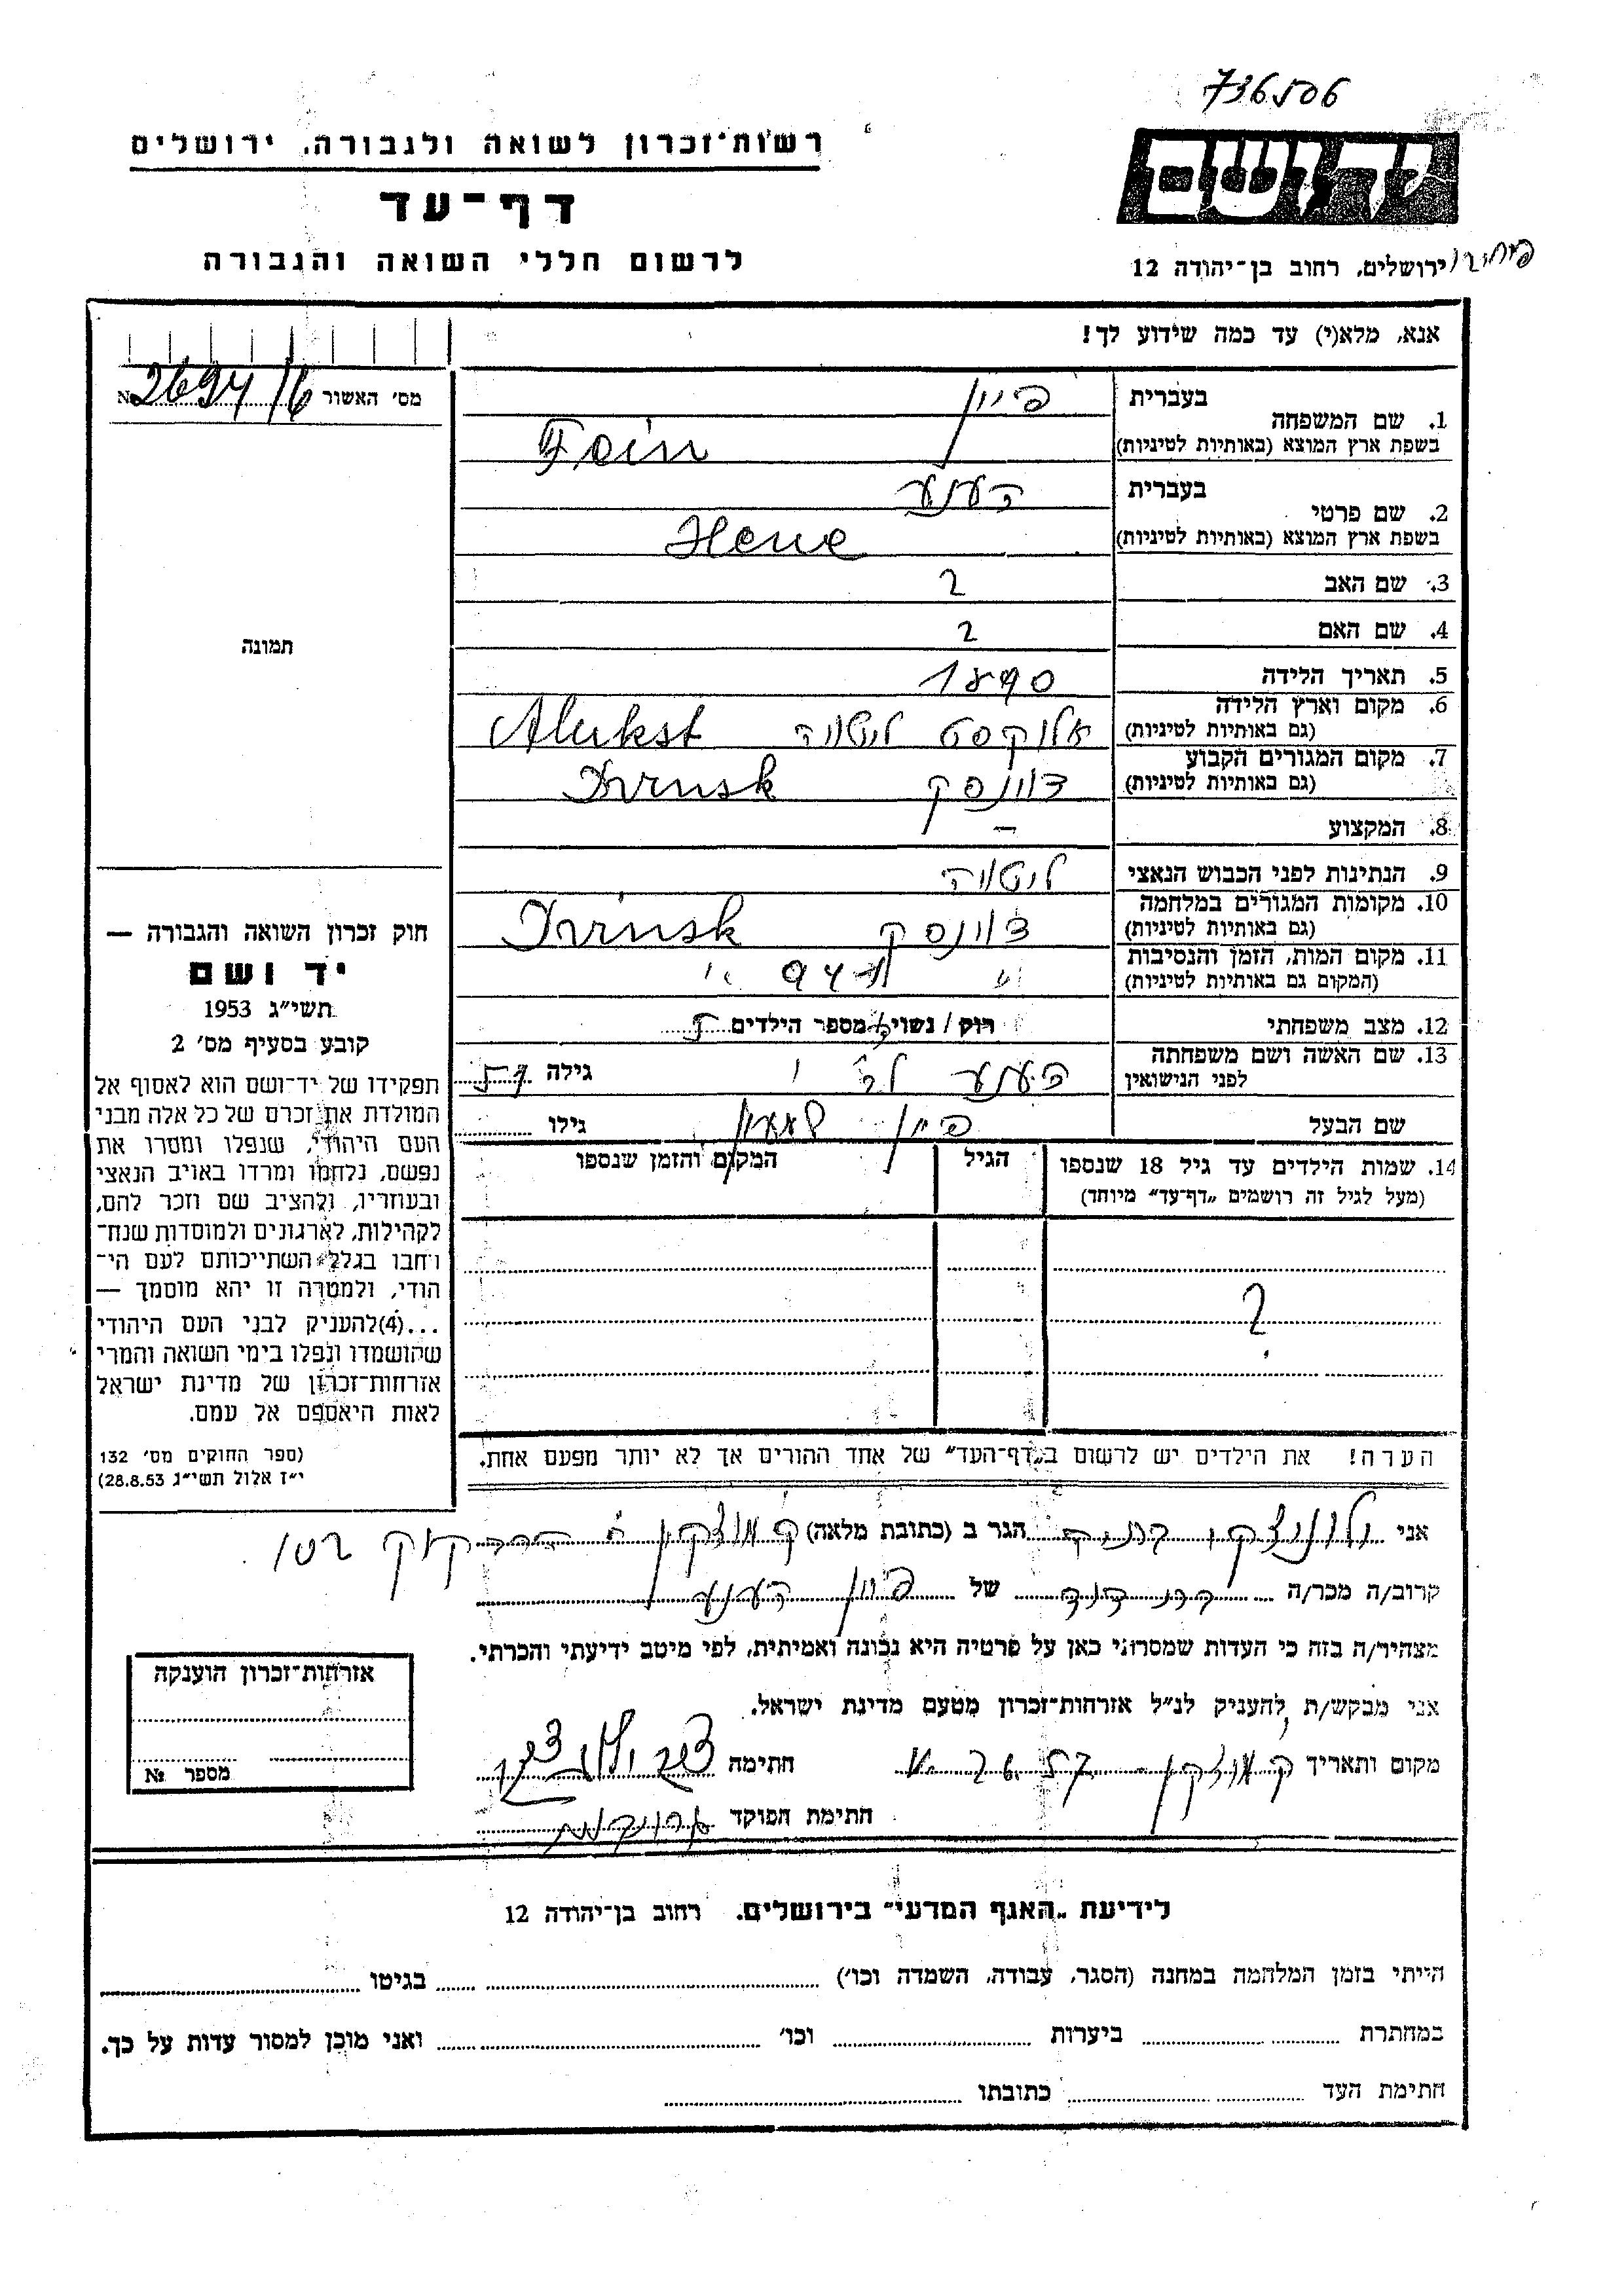 736506
רשות־זכרון לשואה ולגבורה, ירושלים
דף־עד
לרשום חללי השואה והגבורה
יד ושם
ירושלים, רחוב בן־יהודה 12
אנא, מלא(י) עד כמה שידוע לך!
מס׳ האשור
בעברית
פיין
1. שם המשפחה
בשפת ארץ המוצא (באותיות לטיניות)
Fein
בעברית
הענע
2. שם פרטי
בשפת ארץ המוצא (באותיות לטיניות)
Hene
3. שם האב ?
4. שם האם ?
5. תאריך הלידה 1890
6. מקום וארץ הלידה
(גם באותיות לטיניות)
אלוקסט לטויה Alukst
7. מקום המגורים הקבוע
(גם באותיות לטיניות)
דוינסק Dvinsk
8. המקצוע –
9. הנתינות לפני הכבוש הנאצי
10. מקומות המגורים במלחמה
(גם באותיות לטיניות)
דוינסק Dvinsk
11. מקום המות, הזמן והנסיבות
(המקום גם באותיות לטיניות)
12. מצב משפחתי רוק / נשוי/ מספר הילדים
13. שם האשה ושם משפחתה
לפני הנישואין
הענע גילה
שם הבעל פיין גילו
14. שמות הילדים עד גיל 18 שנספו
(מעל לגיל זה רושמים „דף־עד״ מיוחד)
הגיל
המקום והזמן שנספו
?
הערה! את הילדים יש לרשום ב„דף־העד״ של אחד ההורים אך לא יותר מפעם אחת.
תמונה
חוק זכרון השואה והגבורה —
יד ושם
תשי״ג 1953
קובע בסעיף מס׳ 2
תפקידו של יד־ושם הוא לאסוף אל
המולדת את זכרם של כל אלה מבני
העם היהודי, שנפלו ומסרו את
נפשם, נלחמו ומרדו באויב הנאצי
ובעוזריו, ולהציב שם וזכר להם,
לקהילות, לארגונים ולמוסדות שנח־
רחבו בגלל השתייכותם לעם הי־
הודי, ולמטרה זו יהא מוסמך —
...(4)להעניק לבני העם היהודי
שהושמדו ונפלו בימי השואה והמרי
אזרחות־זכרון של מדינת ישראל
לאות היאספם אל עמם.
(ספר החוקים מס׳ 132
י״ז אלול תשי״ג 28.8.53)
אני הגר ב (כתובת מלאה) ק מוצקין
קרוב/ה מכר/ה של פיין הענע
מצהיר/ה בזה כי העדות שמסרתי כאן על פרטיה היא נכונה ואמיתית, לפי מיטב ידיעתי והכרתי.
אני מבקש/ת להעניק לנ״ל אזרחות־זכרון מטעם מדינת ישראל.
מקום ותאריך ק מוצקין חתימה
חתימת הפוקד
אזרחות־זכרון הוענקה
מספר №
לידיעת „האגף המדעי״ בירושלים, רחוב בן־יהודה 12
הייתי בזמן המלחמה במחנה (הסגר, עבודה, השמדה וכו׳) בגיטו
במחתרת ביערות וכו׳ ואני מוכן למסור עדות על כך.
חתימת העד כתובתו